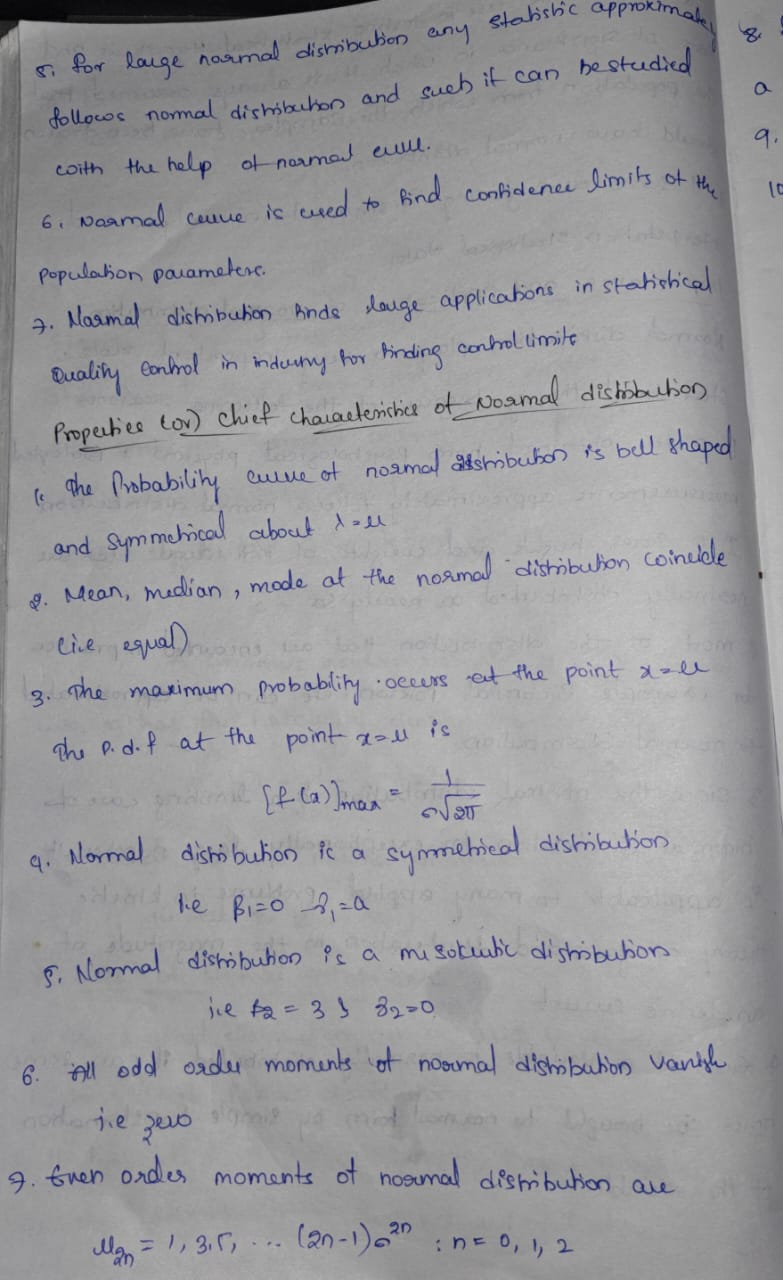 5. for large normal distribution any statistic approximately
follows normal distribution and such it can be studied
with the help of normal curve.
6. Normal curve is used to find confidence limits of the
population parameters.
7. Normal distribution finds large applications in statistical
Quality control in industry for finding control limits
Properties (or) Chief characteristics of Normal distribution
1. The Probability curve of normal distribution is bell shaped
and symmetrical about x=μ
2. Mean, median, mode at the normal distribution coincide
(i.e equal)
3. The maximum probability occurs at the point x=μ
The p.d.f at the point x=μ is
[f(x)]max = 1/σ√2π
4. Normal distribution is a symmetrical distribution
i.e β₁=0 γ₁=a
5. Normal distribution is a mesokurtic distribution
i.e β2 = 3 γ2=0
6. All odd order moments of normal distribution vanish
i.e zero
7. Even order moments of normal distribution are
μ2n = 1, 3, 5, ... (2n-1)σ^2n : n = 0, 1, 2
8.
a
9.
10